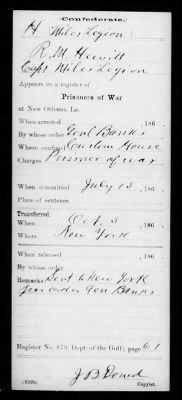 Confederate.
H Miles Legion
R. M. Hewitt
Capt Miles Legion
Appears on a register of
Prisoners of War
at New Orleans, La.
When arrested , 186 .
By whose order Genl Banks
Where confined Custom House
Charges Prisoner of war
When committed July 13 , 186 .
Place of sentence
Transferred:
When Oct. 3 , 186 .
Where New York
When released , 186 .
By whose order
Remarks: Sent to New York
per order Gen Banks
Register No. 879, Dept. of the Gulf; page 61
J B Dowd
Copyist.